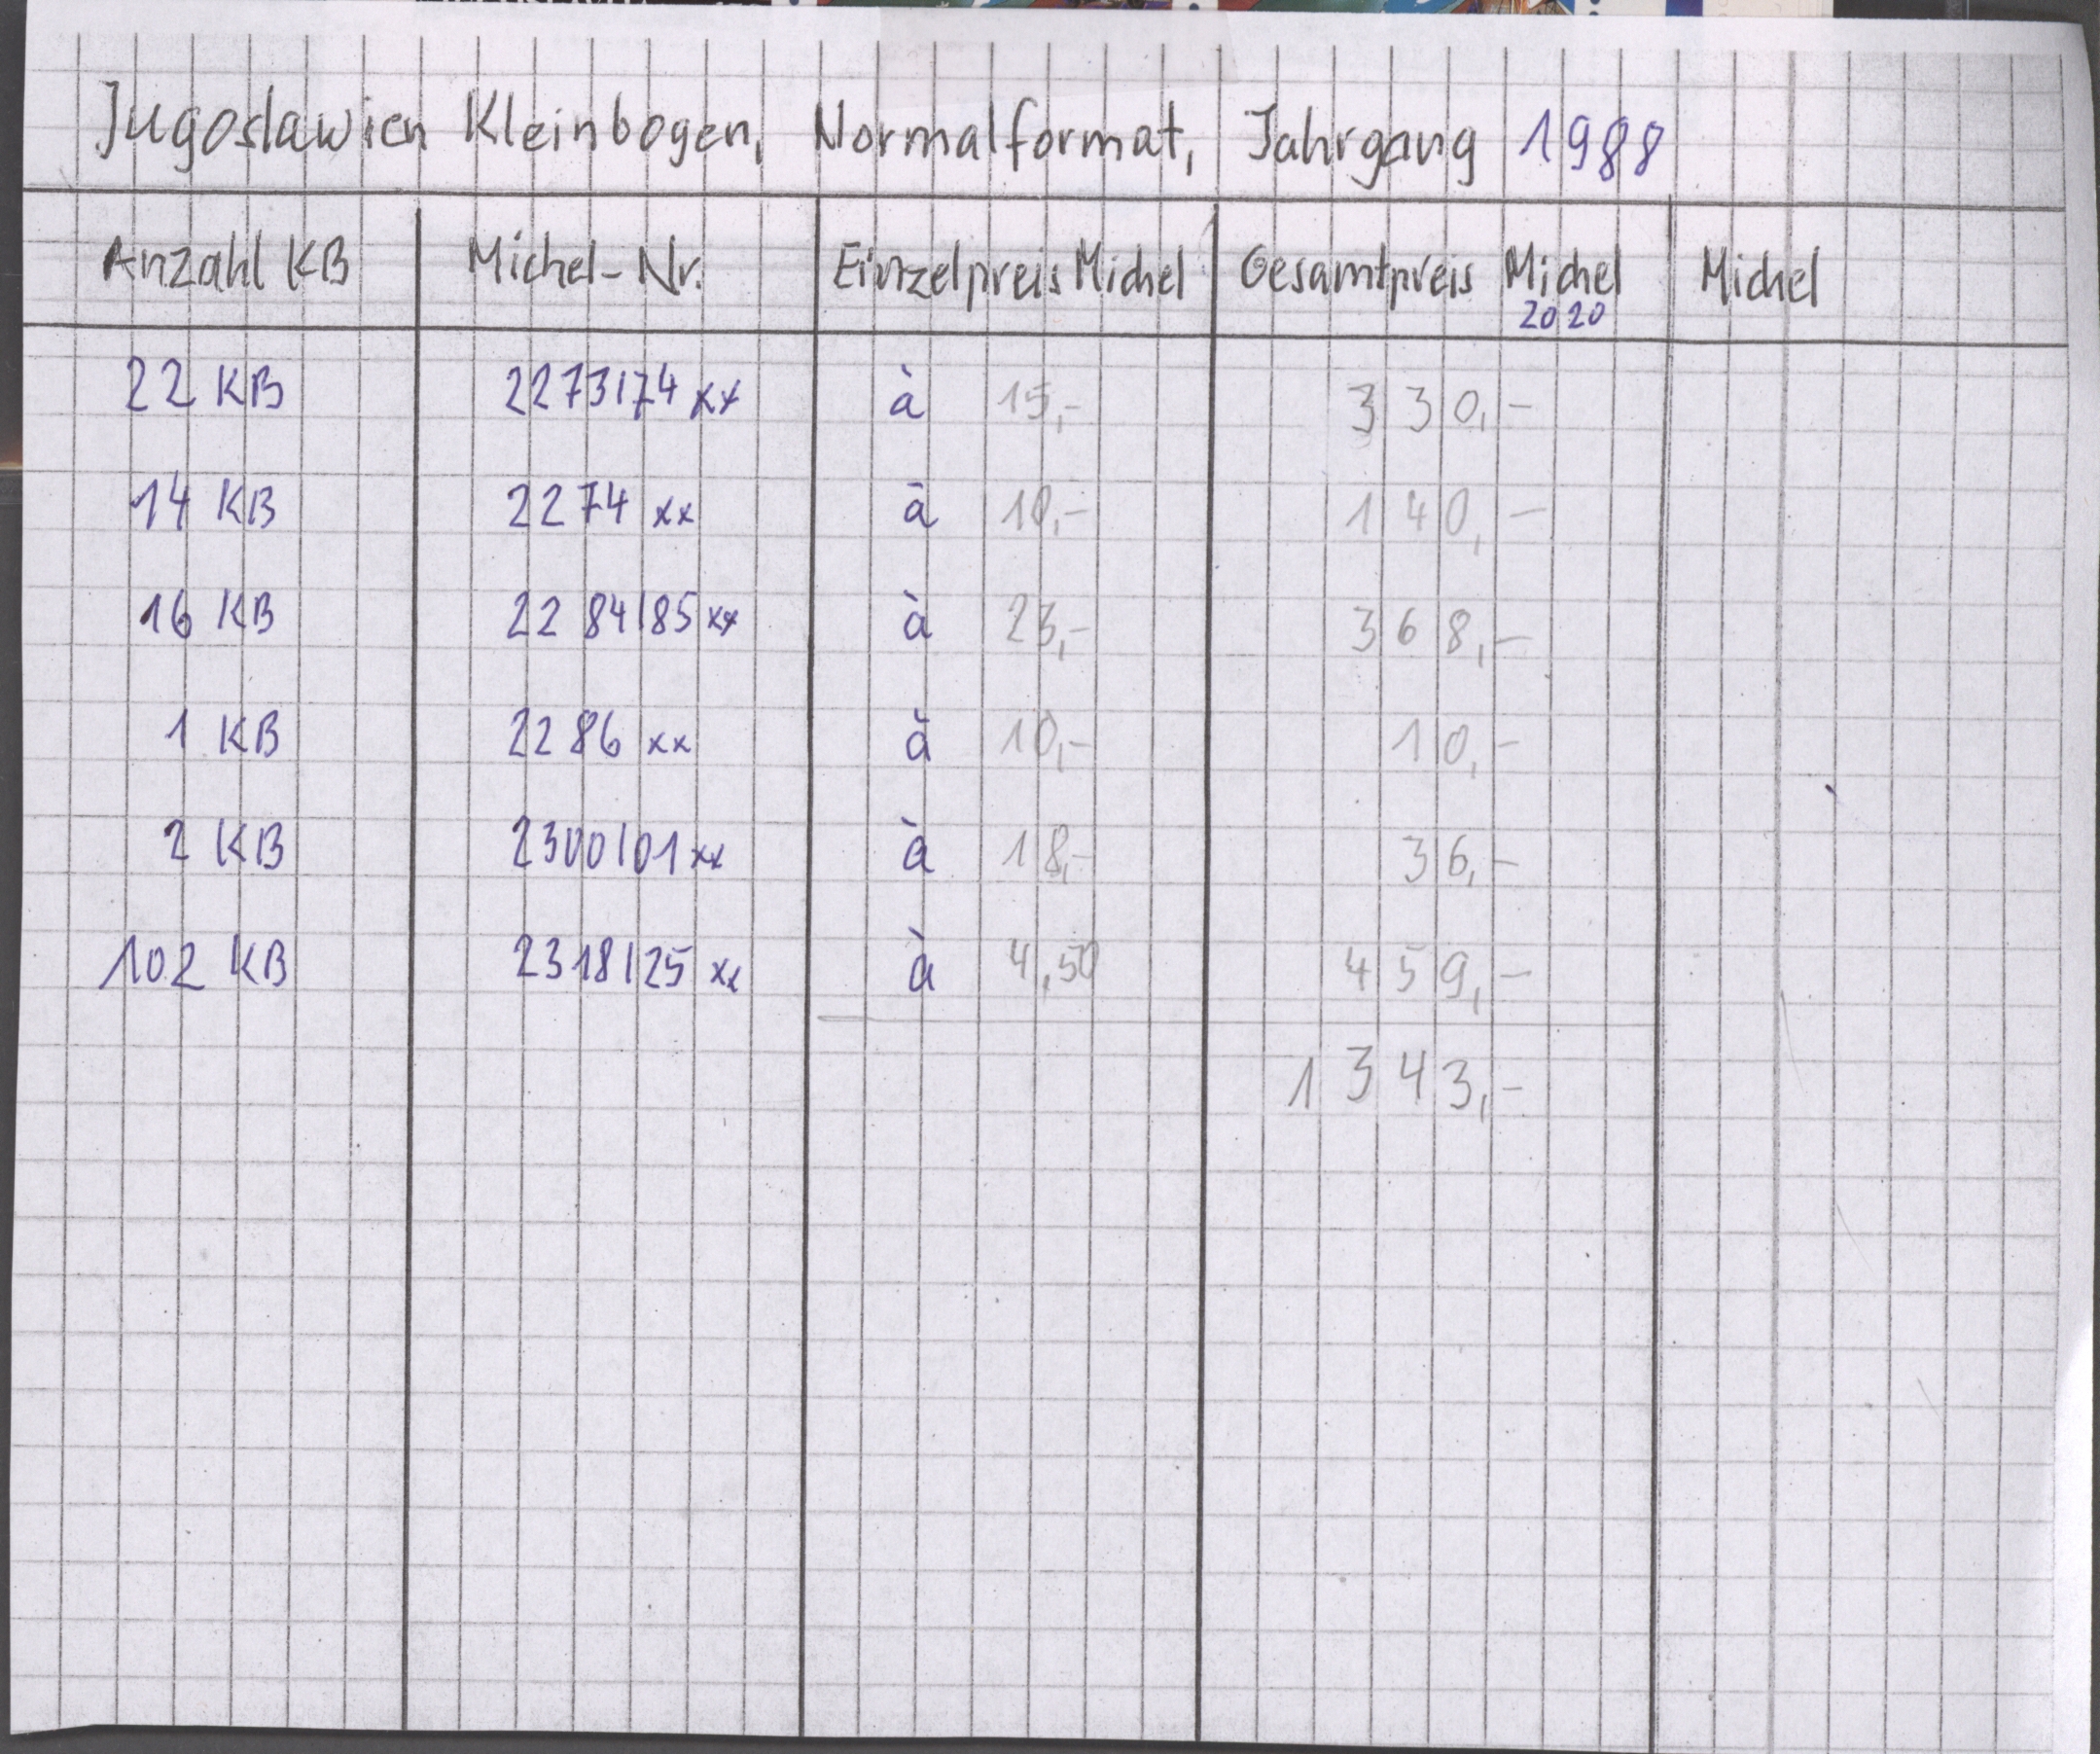 Jugoslawien Kleinbogen, Normalformat, Jahrgang 1988
Anzahl KB Michel-Nr. Einzelpreis Michel Gesamtpreis Michel 2020 Michel
22 KB 2273/74 xx à 15,- 330,-
14 KB 2274 xx à 10,- 140,-
16 KB 2284/85 xx à 23,- 368,-
1 KB 2286 xx à 10,- 10,-
2 KB 2300/01 xx à 18,- 36,-
102 KB 2318/25 xx à 4,50 459,-
1343,-